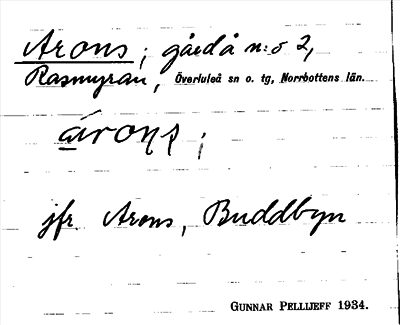 Arons; gård å n:o 2,
Rasmyran, Överluleå sn o. tg, Norrbottens län.
árons;
jfr. Arons, Buddbyn
GUNNAR PELLIJEFF 1934.